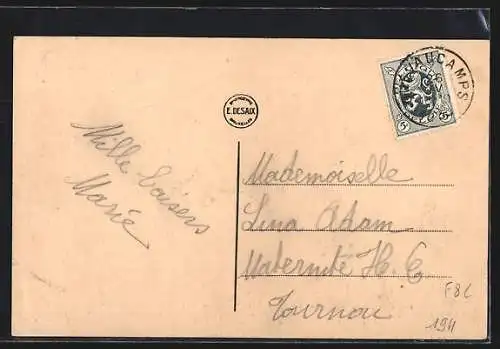 Mille baisers
Marie
E. DESAIX
Mademoiselle
Lina Adam
Maternité H. C
Tournai
F8L
1941